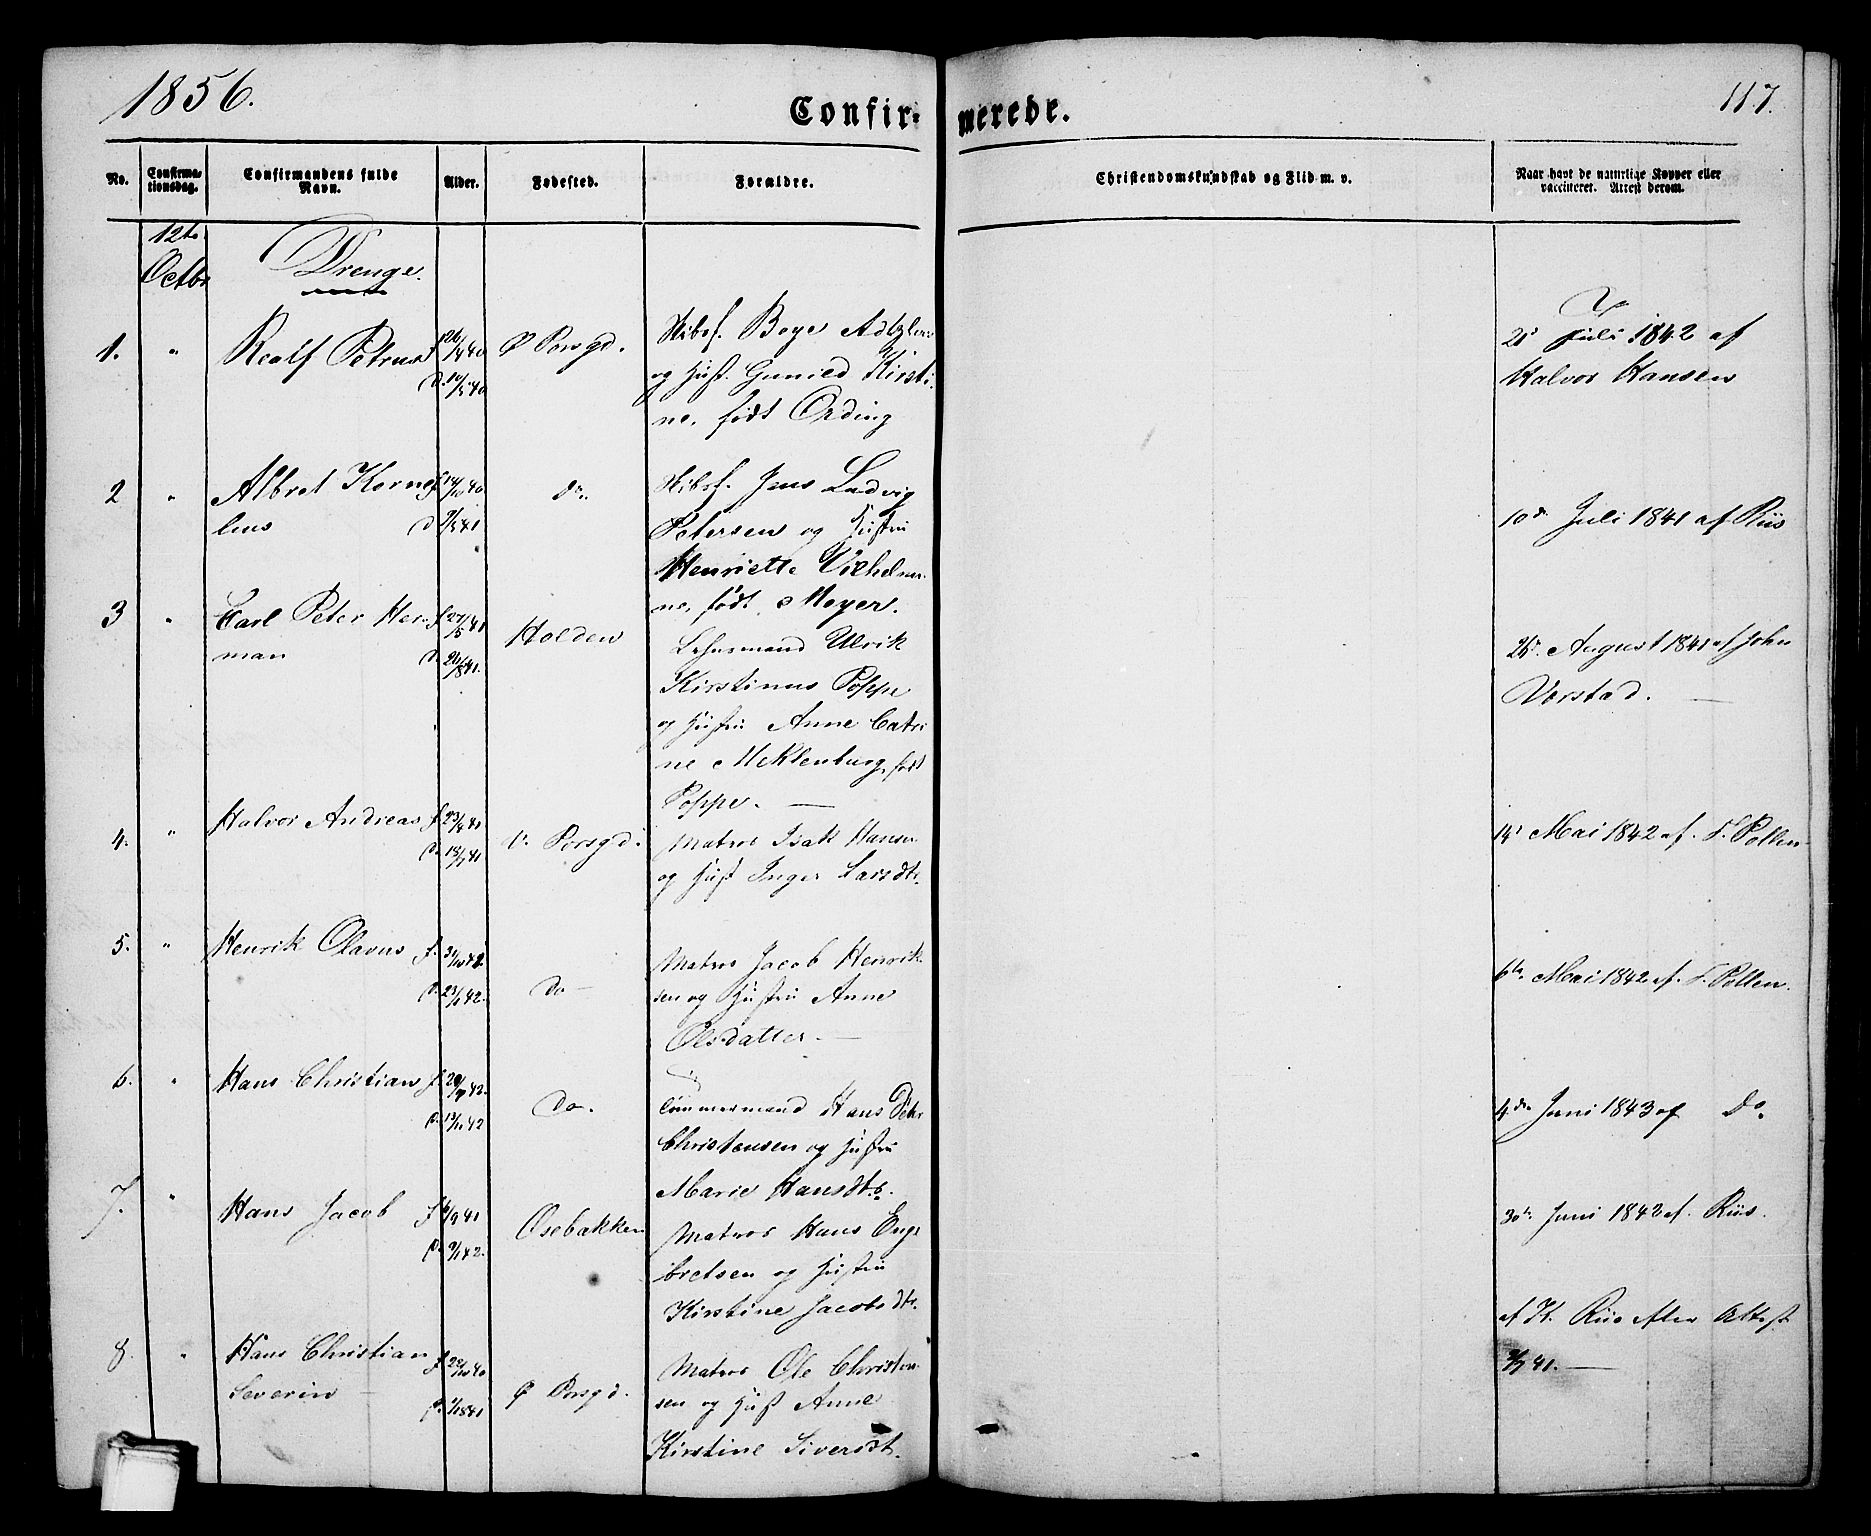 1856.
Confir-
merede.
117.
No.
Confirma-
tionsdag.
Confirmandens fulde
Navn.
Alder.
Fødested.
Forældre.
Christendomskundskab og Flid m. v.
Naar havt de naturlige Kopper eller
vaccineret. Attest derom.
12te
Octbr
Drenge.
1. " Realf Petrus f. 26/4 40 Ø Porsgd.
d. 10/5 40
Skibsf. Boye
og Hust. Gunild Kirsti-
ne, født Ording
21 Juli 1842 af
Halvor Hansen
2 " Albret Korne-
lius
f. 14/10 40
d /5 41
do.
Skibsf. Jens Ludvig
Petersen og Hustru
Henriette Vilhelmi-
ne, født Meyer.
10de Juli 1841 af Riis
3 " Carl Peter Her-
man
f. 27/5 41
d. 26/8 41.
Holden
Lehnsmand Ulrik
Kirstinus Poppe
og Hustru Anne Catri
ne Meklenburg, født
Poppe. —
26de August 1841 af John
Vorstad. —
4. " Halvor Andreas f. 23/4 41
d. 18/7 41
V. Porsgd.
Matros Isak Hansen
og Hust Inger Larsdtr.
14 Mai 1842 af. F. Pollen
5. " Henrik Olavus f. 31/10 41
d. 23/1 42.
Do —
Matros Jacob Henrik-
sen og Hustru Anne
Olsdatter. —
6te Mai 1842 af. F. Pollen.
6. " Hans Christian f. 20/9 42.
d. 13/11 42
Do.
Tømmermand Hans Peter
Christensen og Hustru
Marie Hansdtr.
4de Juni 1843 af Do.
7. " Hans Jacob f /9 41
d. 9/1 42.
Osebakken
Matros Hans Enge
bretsen og Hustru
Kirstine Jacobsdtr.
30te Juni 1842 af. Riis.
8. " Hans Christian
Severin —
f 22/10 40
d. 1/1841
Ø Porsgd.
Matros Ole Christen-
sen og Hust Anne
Kirstine Siversdt.
af H. Riis efter Attest
/7 41. —